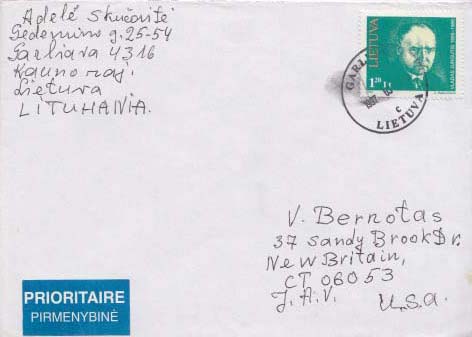 Adelė Skučaitė
Gedemino g. 25-54
Garliava 4316
Kauno raj.
Lietuva
LITUHANIA.
LIETUVA
1.20 Lt
GARL
1997
C
LIETUVA
V. Bernotas
37 Sandy Brook Dr.
New Britain,
CT 06053
J.A.V. U.S.A.
PRIORITAIRE
PIRMENYBINĖ